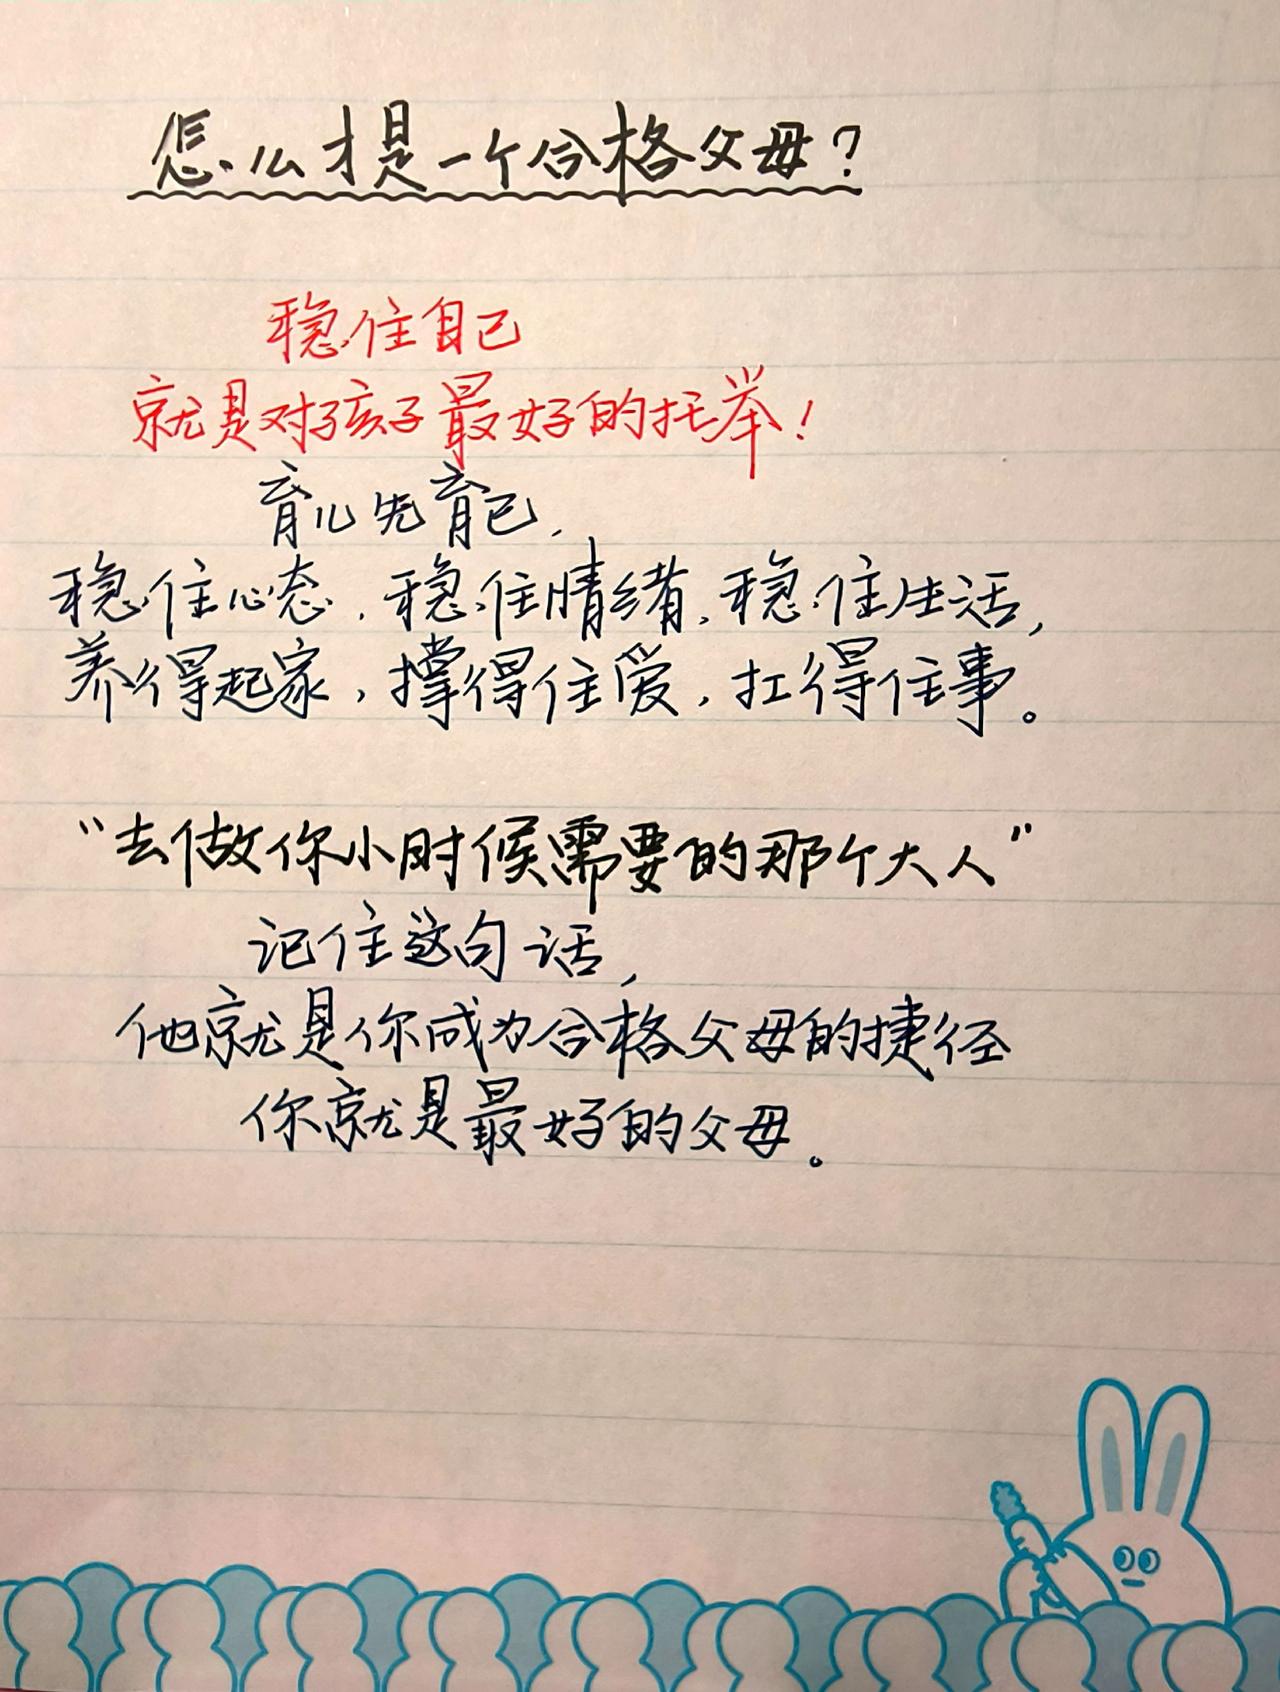 怎么才是一个合格父母?
稳住自己
就是对孩子最好的托举!
育儿先育己,
稳住心态,稳住情绪,稳住生活,
养得起家,撑得住爱,扛得住事。
“去做你小时候需要的那个大人”
记住这句话,
他就是你成为合格父母的捷径
你就是最好的父母。